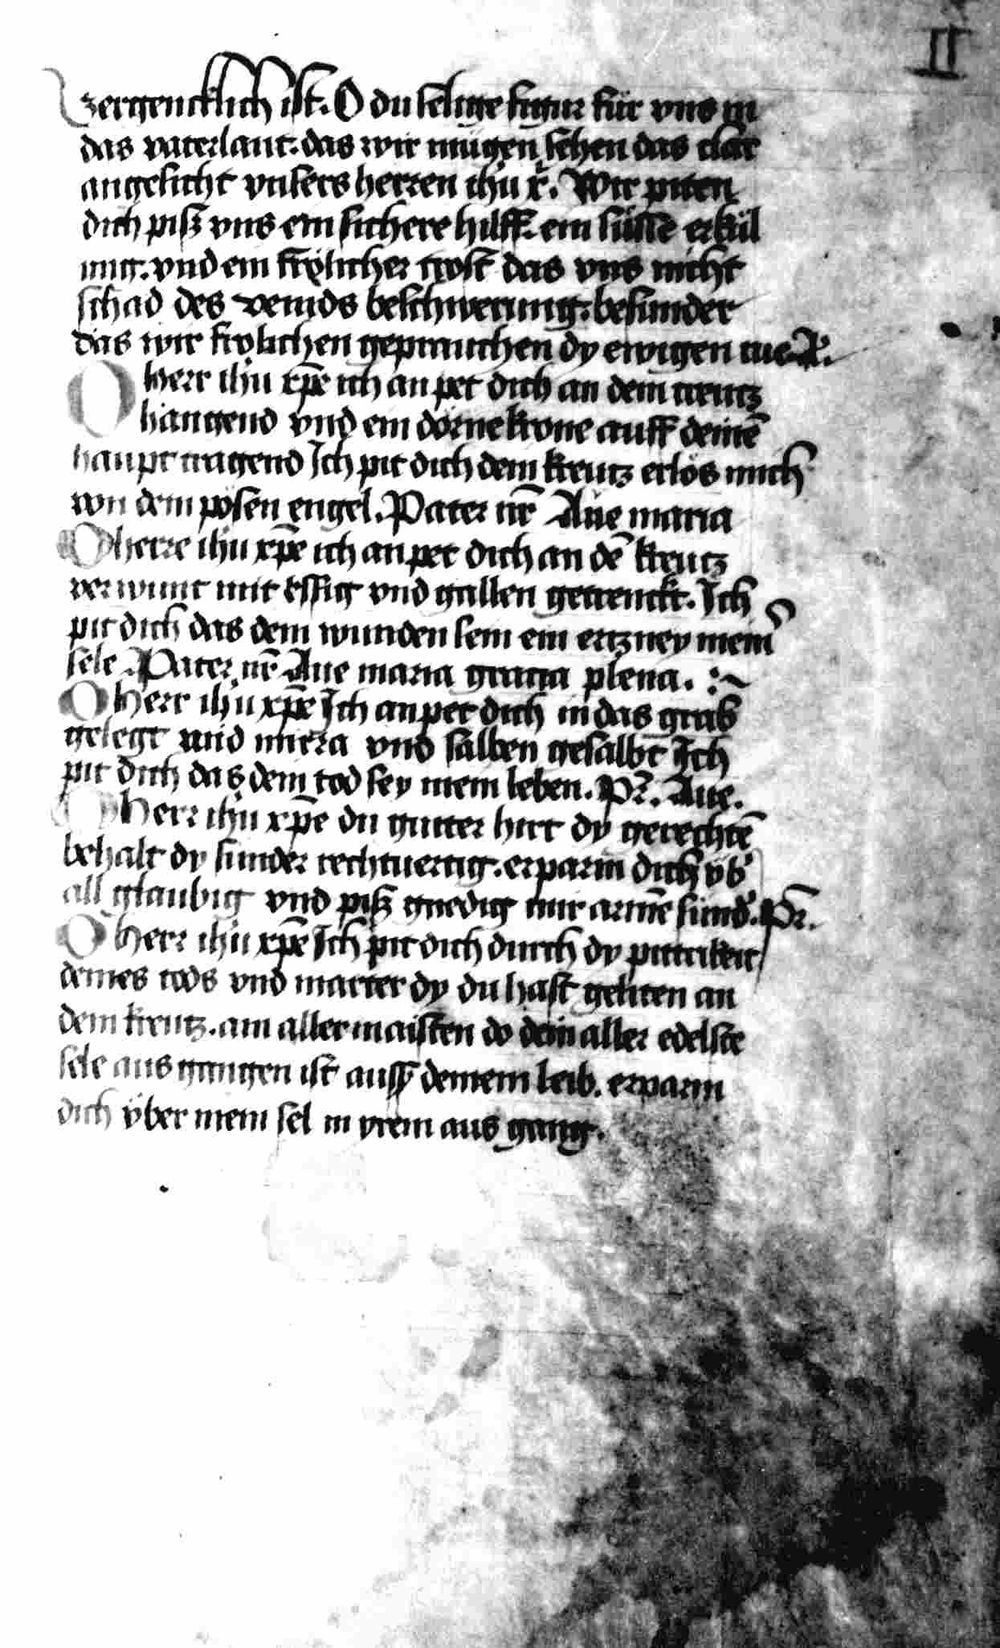 II
zergencklich ist. O du selige figur für vns in
das vaterlant. das wir mügen sehen das clar
angesicht vnsers herren ihu x̄. Wir piten
dich piß vns ein sichere hilff. ein süsse erkül
ung. vnd ein frölicher trost das vns nicht
schad des veinds beschwerung. besunder
das wir frölichen geprauchen dy ewigen rue A.
O Herr ihu xp̄e ich an pet dich an dem creutz
hangend vnd ein dörne krone auff deinē
haupt tragend Ich pit dich dein kreutz erlös mich
von dem pösen engel. Pater nr̄ Aue maria
O herre ihu xp̄e ich an pet dich an dē kreutz
verwunt mit essig vnd gallen getrenckt. Ich
pit dich das dein wunden sein ein ertzney meiner
sele. Pater nr̄ Aue maria gracia plena.
O Herr ihu xp̄e Ich an pet dich in das grab
gelegt mid mirra vnd salben gesalbt Ich
pit dich das dein tod sey mein leben. Pr̄. Aue.
O Herr ihu xp̄e du gutter hirt dy gerechtē
behalt dy sunder rechtuertig. erparm dich üb'
all glaubig vnd piß gnedig mir armē sünd'. Pr̄.
O Herr ihu xp̄e Ich pit dich durch dy pittrikeit
deines tods vnd marter dy du hast geliten an
dem kreutz. am aller maisten do dein aller edelste
sele aus gangen ist auss deinem leib. erparm
dich über mein sel in yrem aus gang.